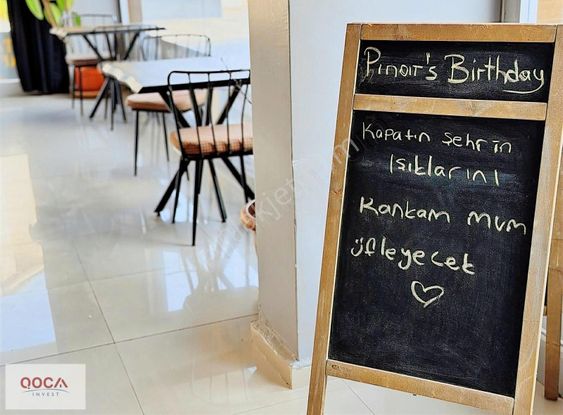 Pınar's Birthday
Kapatın Şehrin
Işıklarını
Kankam mum
üfleyecek
QOCA
INVEST